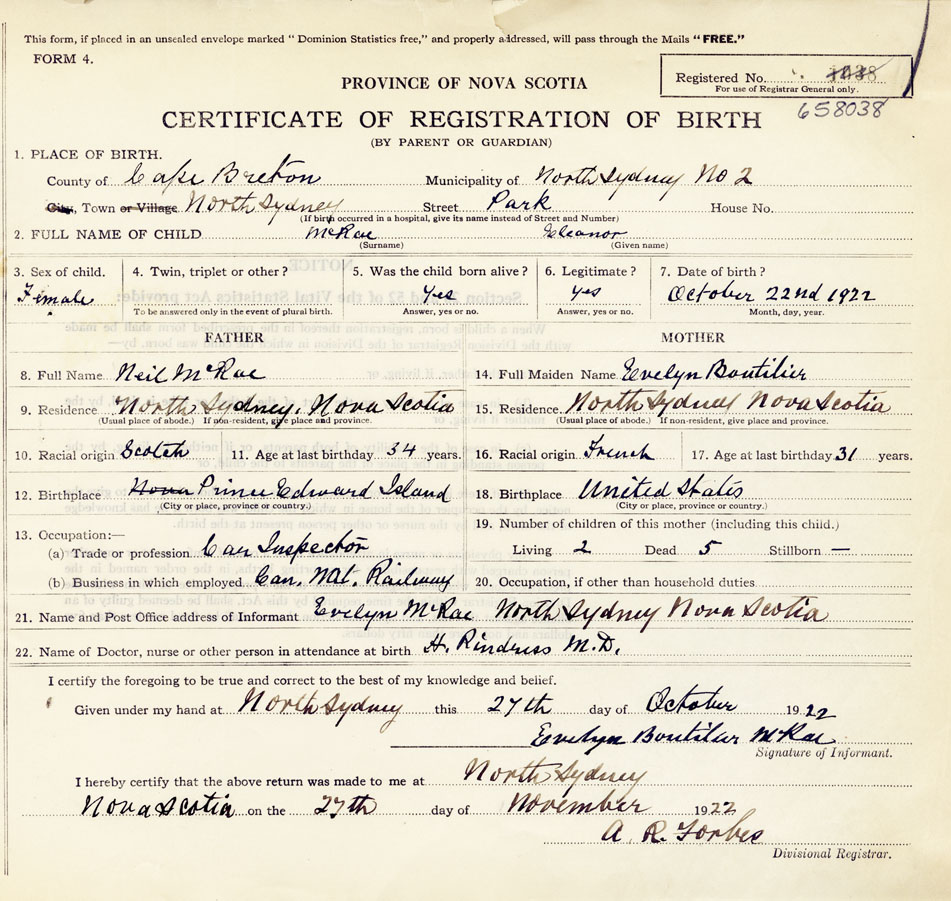 This form, if placed in an unsealed envelope marked "Dominion Statistics free," and properly addressed, will pass through the Mails "FREE."
FORM 4.
Registered No.
For use of Registrar General only.
PROVINCE OF NOVA SCOTIA
658038
CERTIFICATE OF REGISTRATION OF BIRTH
(BY PARENT OR GUARDIAN)
1. PLACE OF BIRTH.
County of Cape Breton Municipality of North Sydney No 2
City, Town or Village North Sydney Street Park House No.
(If birth occurred in a hospital, give its name instead of Street and Number)
2. FULL NAME OF CHILD McRae Eleanor
(Surname) (Given name)
3. Sex of child. 4. Twin, triplet or other? 5. Was the child born alive? 6. Legitimate? 7. Date of birth?
Female yes yes October 22nd 1922
To be answered only in the event of plural birth. Answer, yes or no. Answer, yes or no. Month, day, year.
FATHER MOTHER
8. Full Name Neil McRae 14. Full Maiden Name Evelyn Boutilier
9. Residence North Sydney, Nova Scotia 15. Residence North Sydney Nova Scotia
(Usual place of abode.) If non-resident, give place and province. (Usual place of abode.) If non-resident, give place and province.
10. Racial origin Scotch 11. Age at last birthday 34 years. 16. Racial origin French 17. Age at last birthday 31 years.
12. Birthplace Nova Prince Edward Island 18. Birthplace United States
(City or place, province or country.) (City or place, province or country.)
13. Occupation:— 19. Number of children of this mother (including this child.)
(a) Trade or profession Car Inspector Living 2 Dead 5 Stillborn —
(b) Business in which employed Can. Nat. Railway 20. Occupation, if other than household duties
21. Name and Post Office address of Informant Evelyn McRae North Sydney Nova Scotia
22. Name of Doctor, nurse or other person in attendance at birth H. Rindress M.D.
I certify the foregoing to be true and correct to the best of my knowledge and belief.
Given under my hand at North Sydney this 27th day of October 1922
Evelyn Boutilier McRae
Signature of Informant.
I hereby certify that the above return was made to me at North Sydney
Nova Scotia on the 27th day of November 1922
A. R. Forbes
Divisional Registrar.